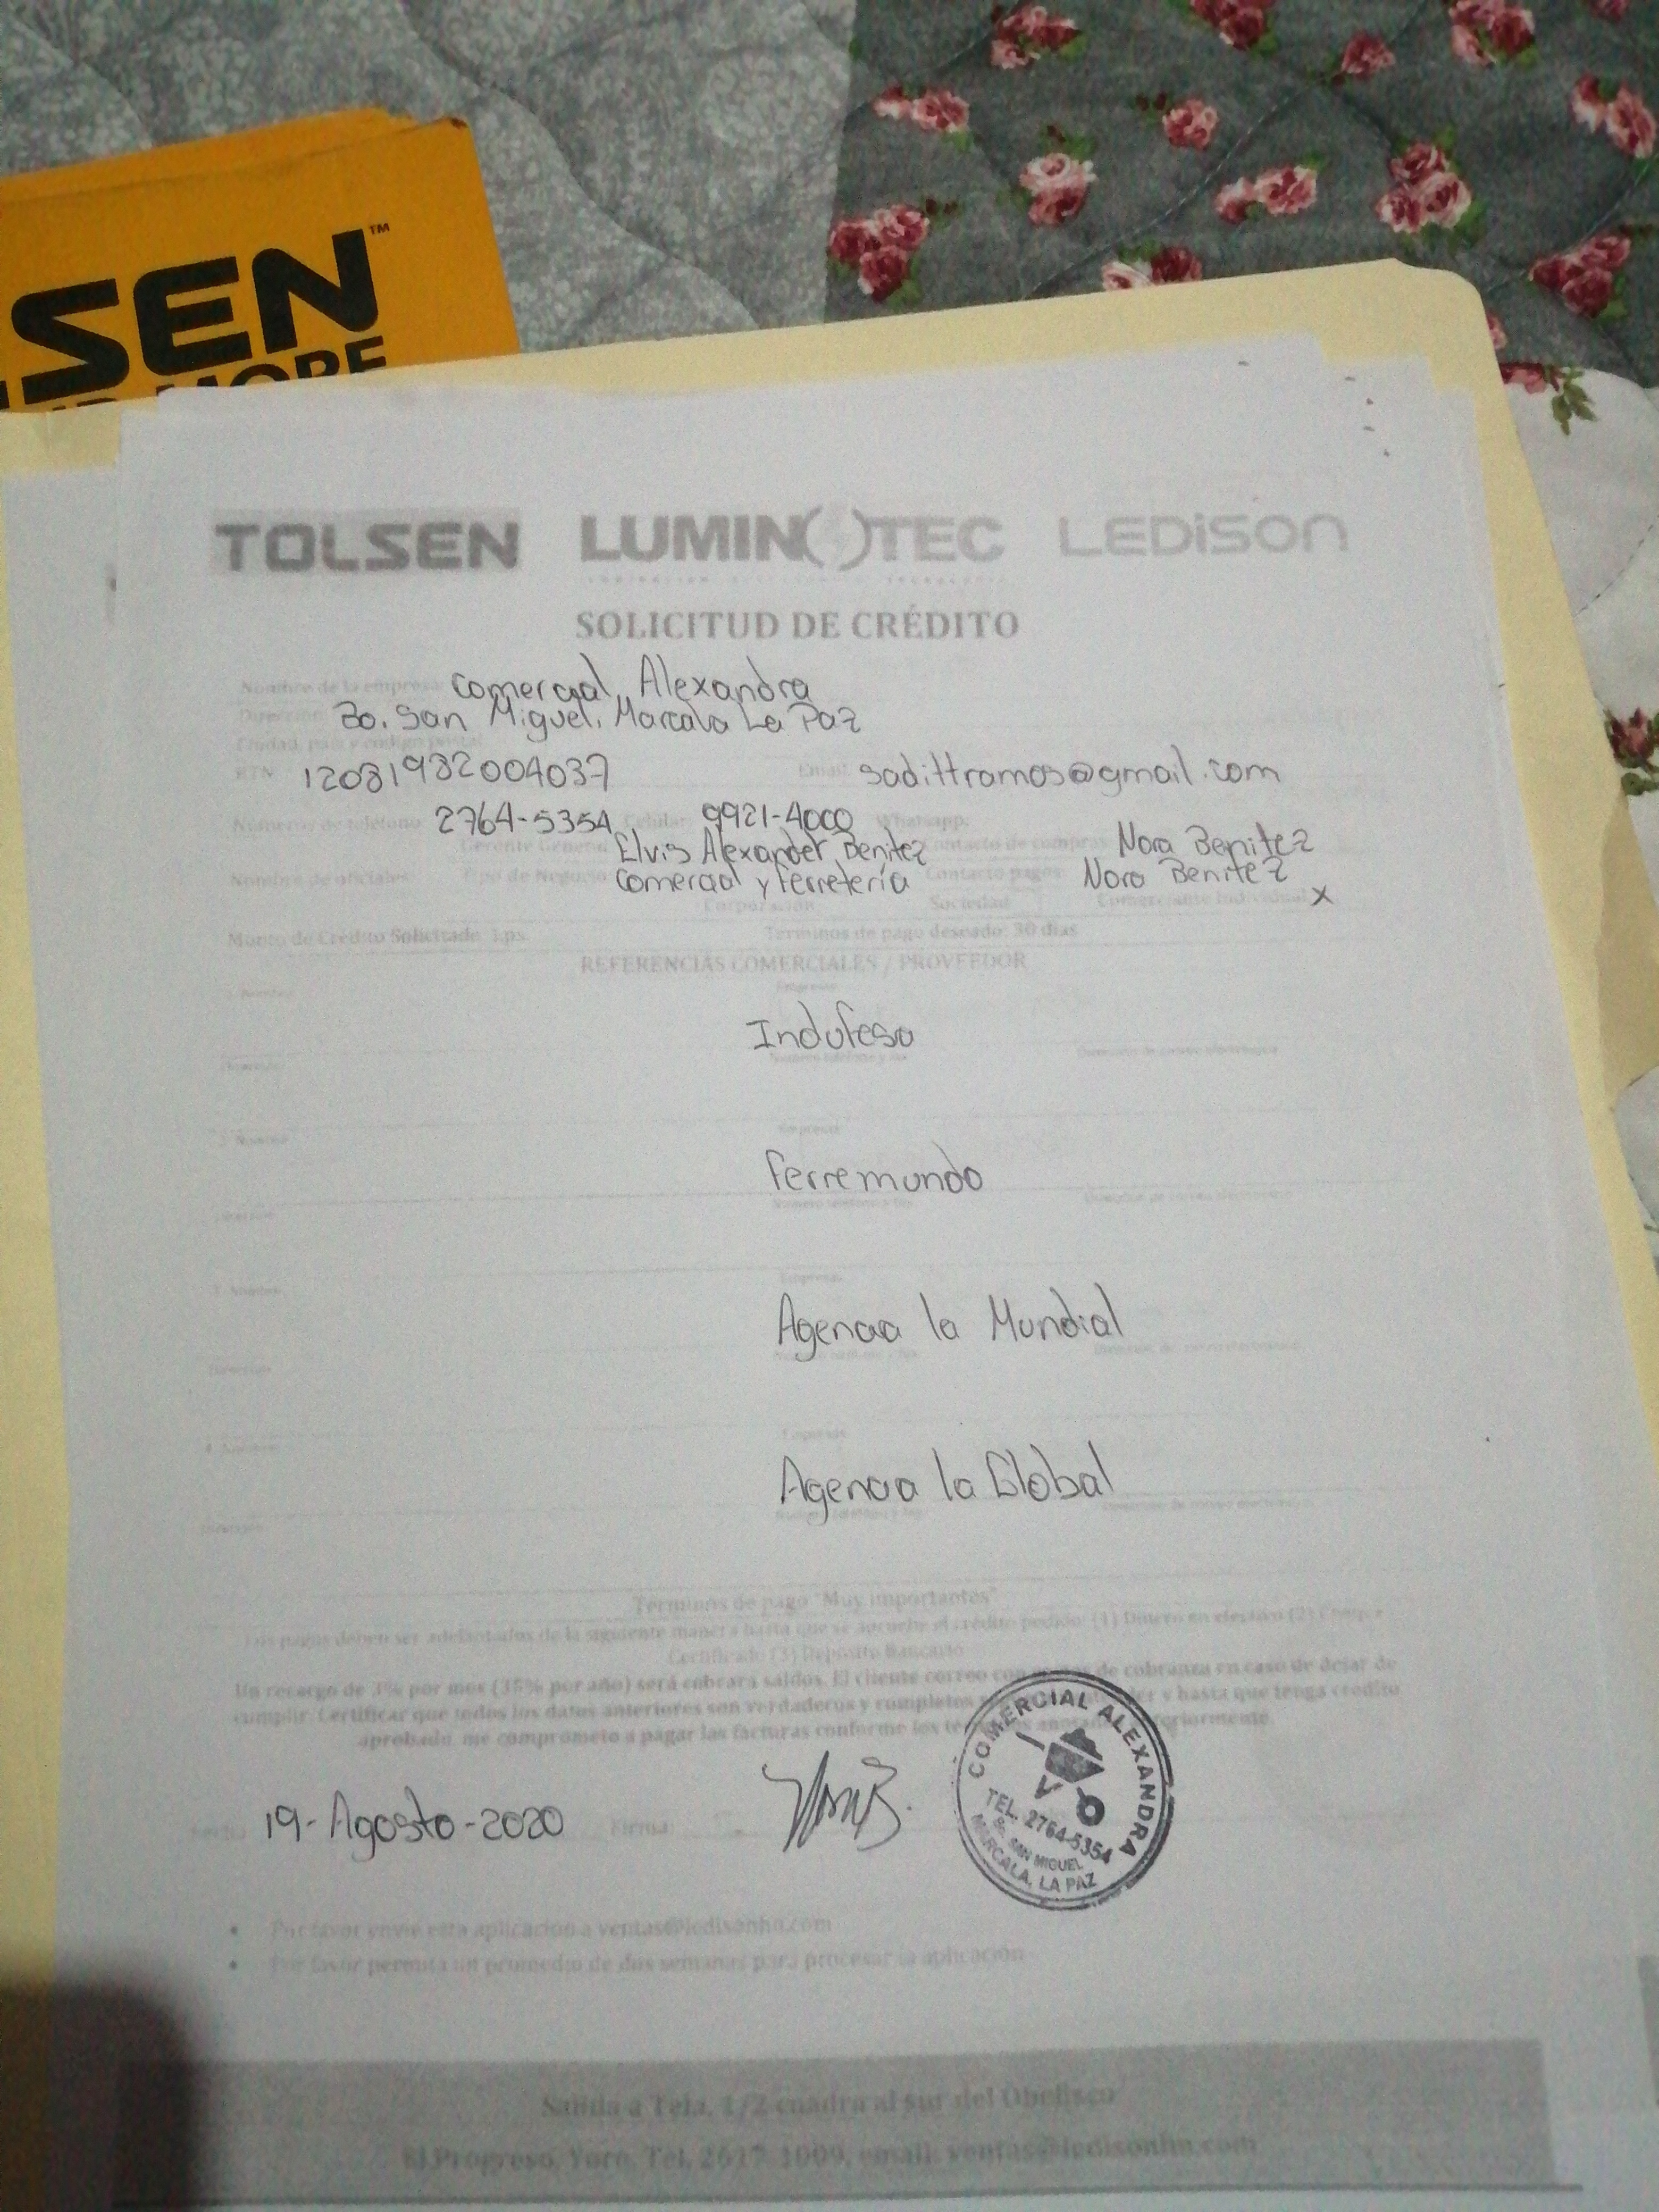 SEN™
MORE
TOLSEN LUMIN()TEC LEDISON
SOLICITUD DE CRÉDITO
Nombre de la empresa: Comercial Alexandra
Dirección Bo. San Miguel, Marcala La Paz
Ciudad, país y código postal
RTN 12081982004037 Email: sadittramos@gmail.com
Números de teléfono 2764-5354 Celular 9921-4000 Whatsapp:
Gerente General Elvis Alexander Benitez Contacto de compras Nora Benitez
Nombre de oficiales Tipo de Negocio Comercial y ferretería Contacto pagos Nora Benitez
Corporación Sociedad Comerciante Individual x
Monto de Crédito Solicitado Lps Terminos de pago deseado: 30 dias
REFERENCIAS COMERCIALES / PROVEEDOR
1. Nombre Empresa
Indufesa
Dirección
2. Nombre Empresa
Ferremundo
Dirección
3. Nombre Empresa
Agencia la Mundial
Dirección
4. Nombre Empresa
Agencia la Global
Dirección
Terminos de pago "Muy importantes"
Los pagos deben ser adelantados de la siguiente manera hasta que se apruebe el crédito pedido: (1) Dinero en efectivo (2) Cheque
Certificado (3) Deposito Bancario
Un recargo de 3% por mes (36% por año) será cobrara saldos. El cliente correo con de cobranza en caso de dejar de
cumplir. Certificar que todos los datos anteriores son verdaderos y completos y hasta que tenga credito
aprobado, me comprometo a pagar las facturas conforme los
Fecha 19-Agosto-2020 Firma:
COMERCIAL ALEXANDRA
TEL. 2764-5354
Bo. SAN MIGUEL
MARCALA, LA PAZ
• Por favor envie esta aplicacion a ventas@ledisonhn.com
• Por favor permita un promedio de dos semanas para procesar la aplicación
Salida a Tela, 1/2 cuadra al sur del Obelisco
El Progreso, Yoro, Tel, 2617-1009, email: ventas@ledisonhn.com